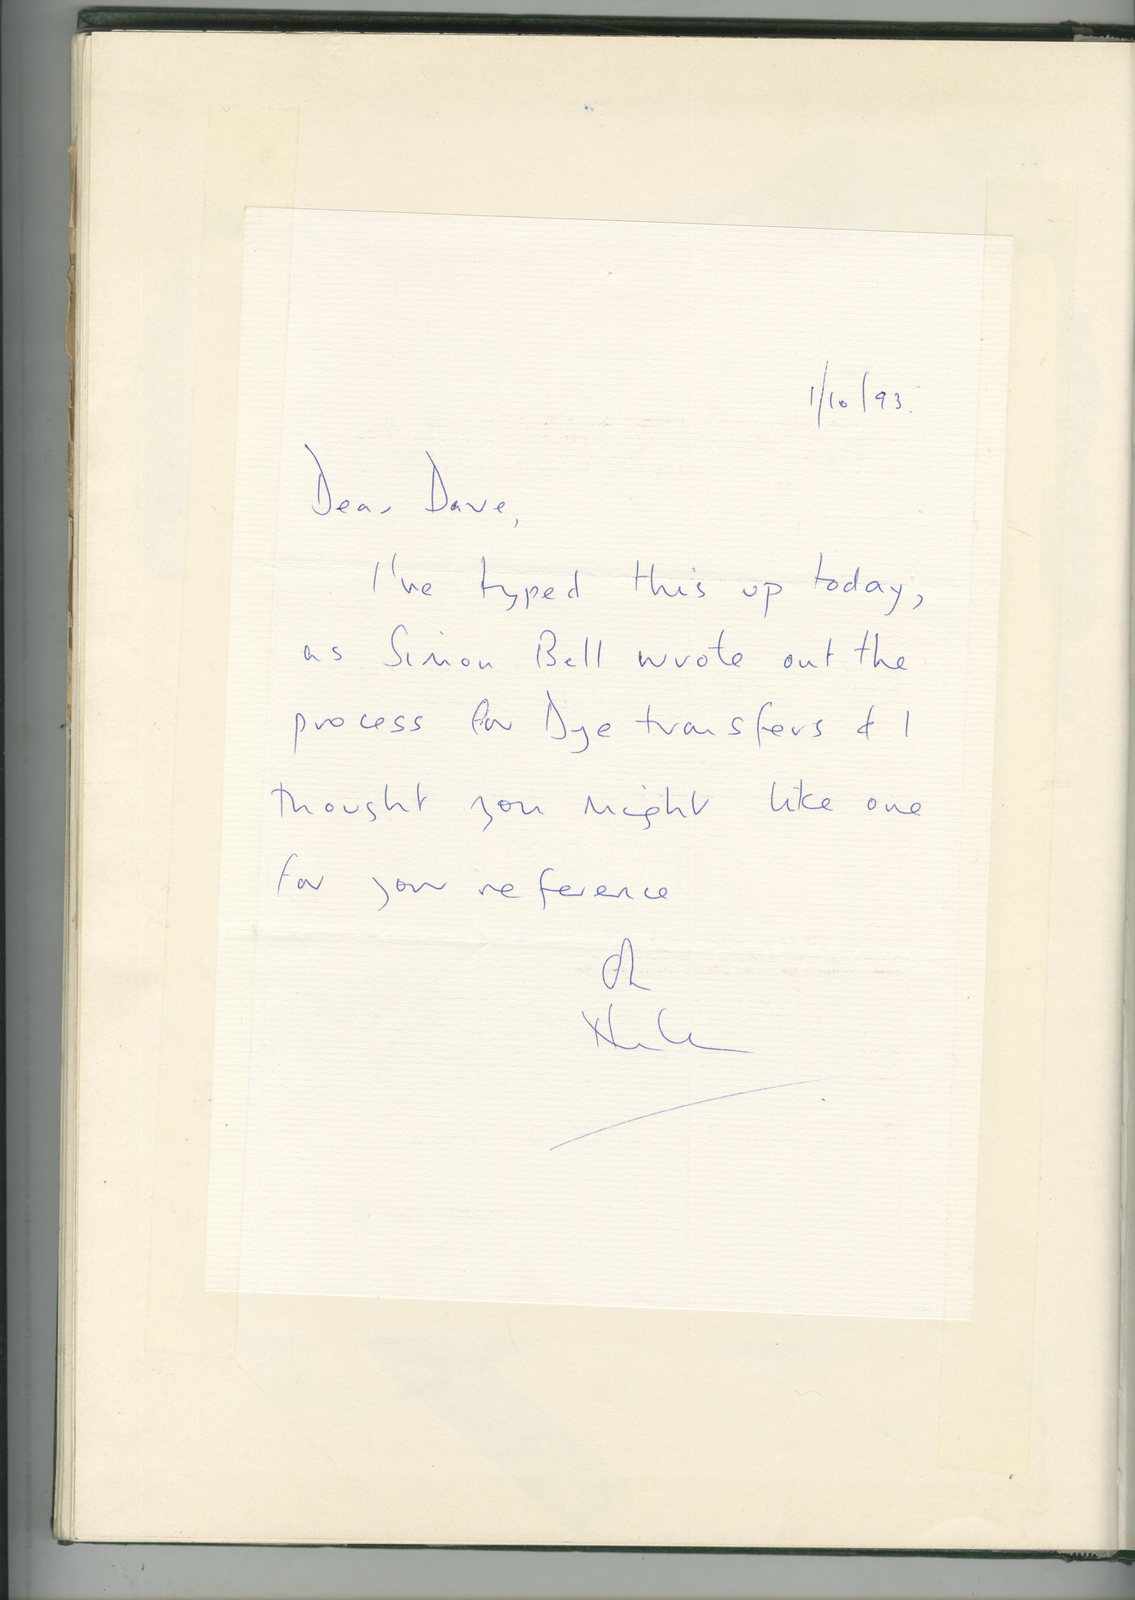 1/10/93.
Dear Dave,
I've typed this up today,
as Simon Bell wrote out the
process for Dye transfers & I
thought you might like one
for your reference